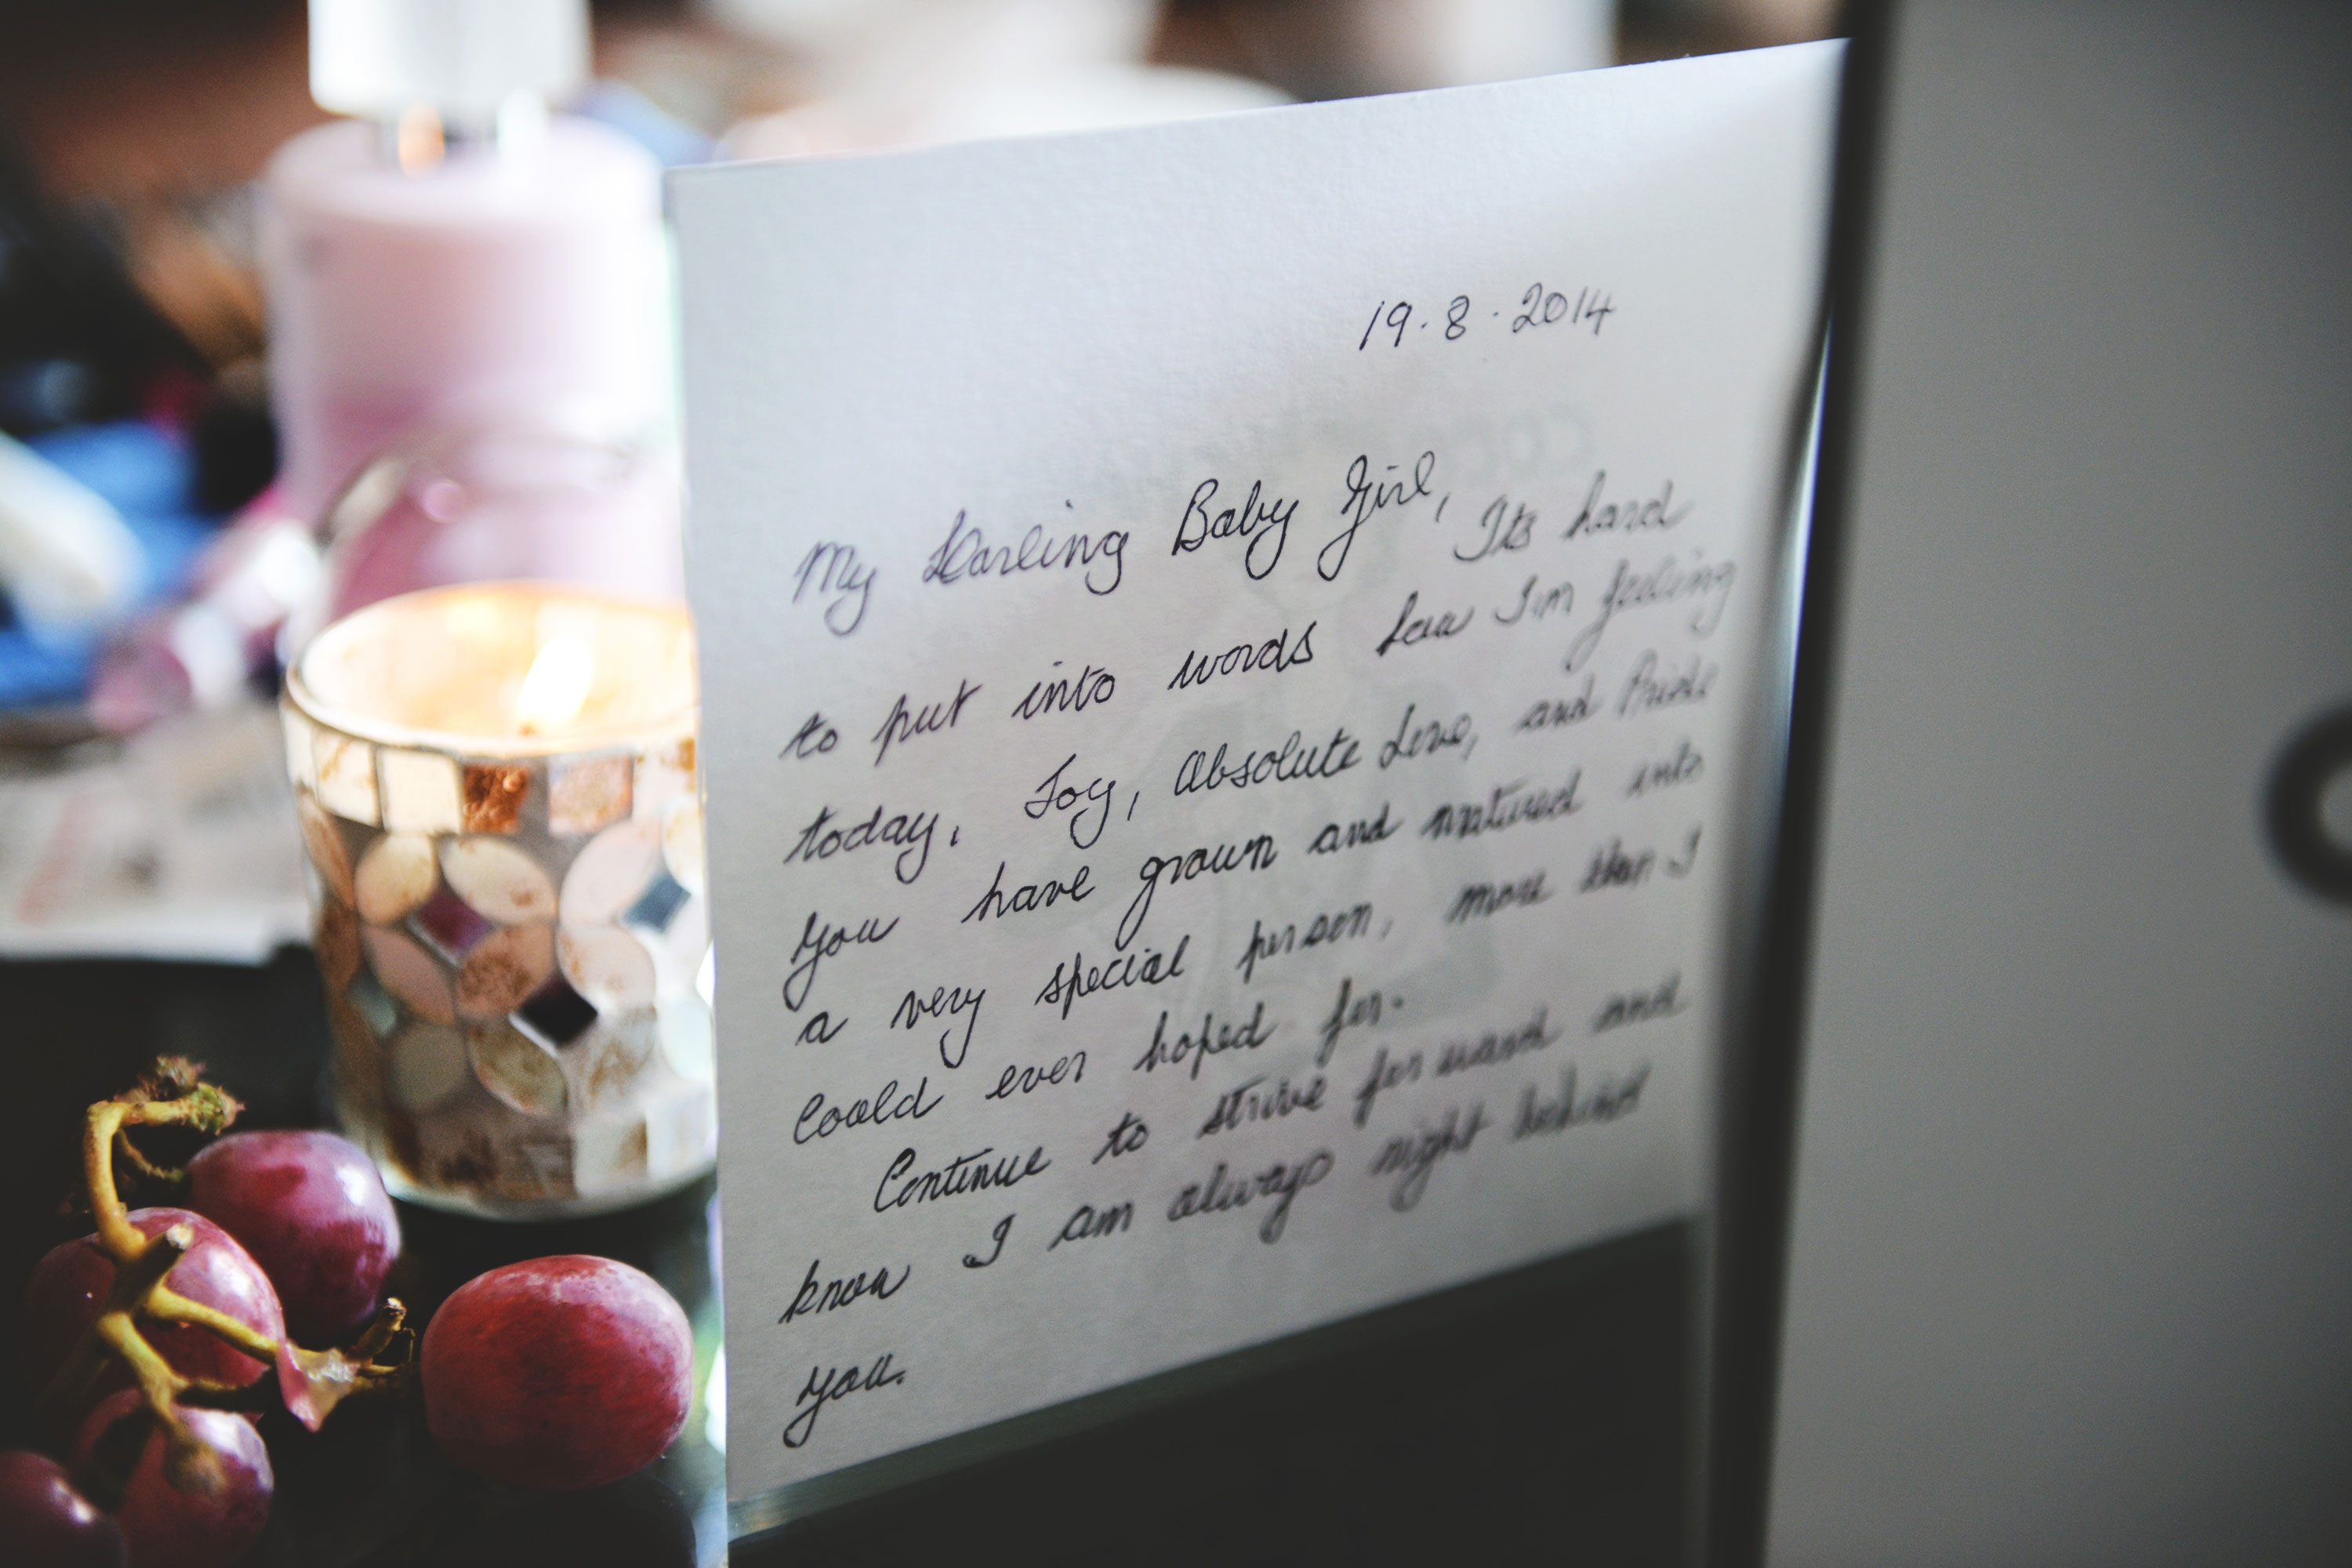 19.8.2014
My Darling Baby Girl, Its hard
to put into words how I'm feeling
today, Joy, Absolute Love, and Pride
you have grown and matured into
a very special person, more than I
could ever hoped for.
Continue to strive forward and
know I am always right behind
you.